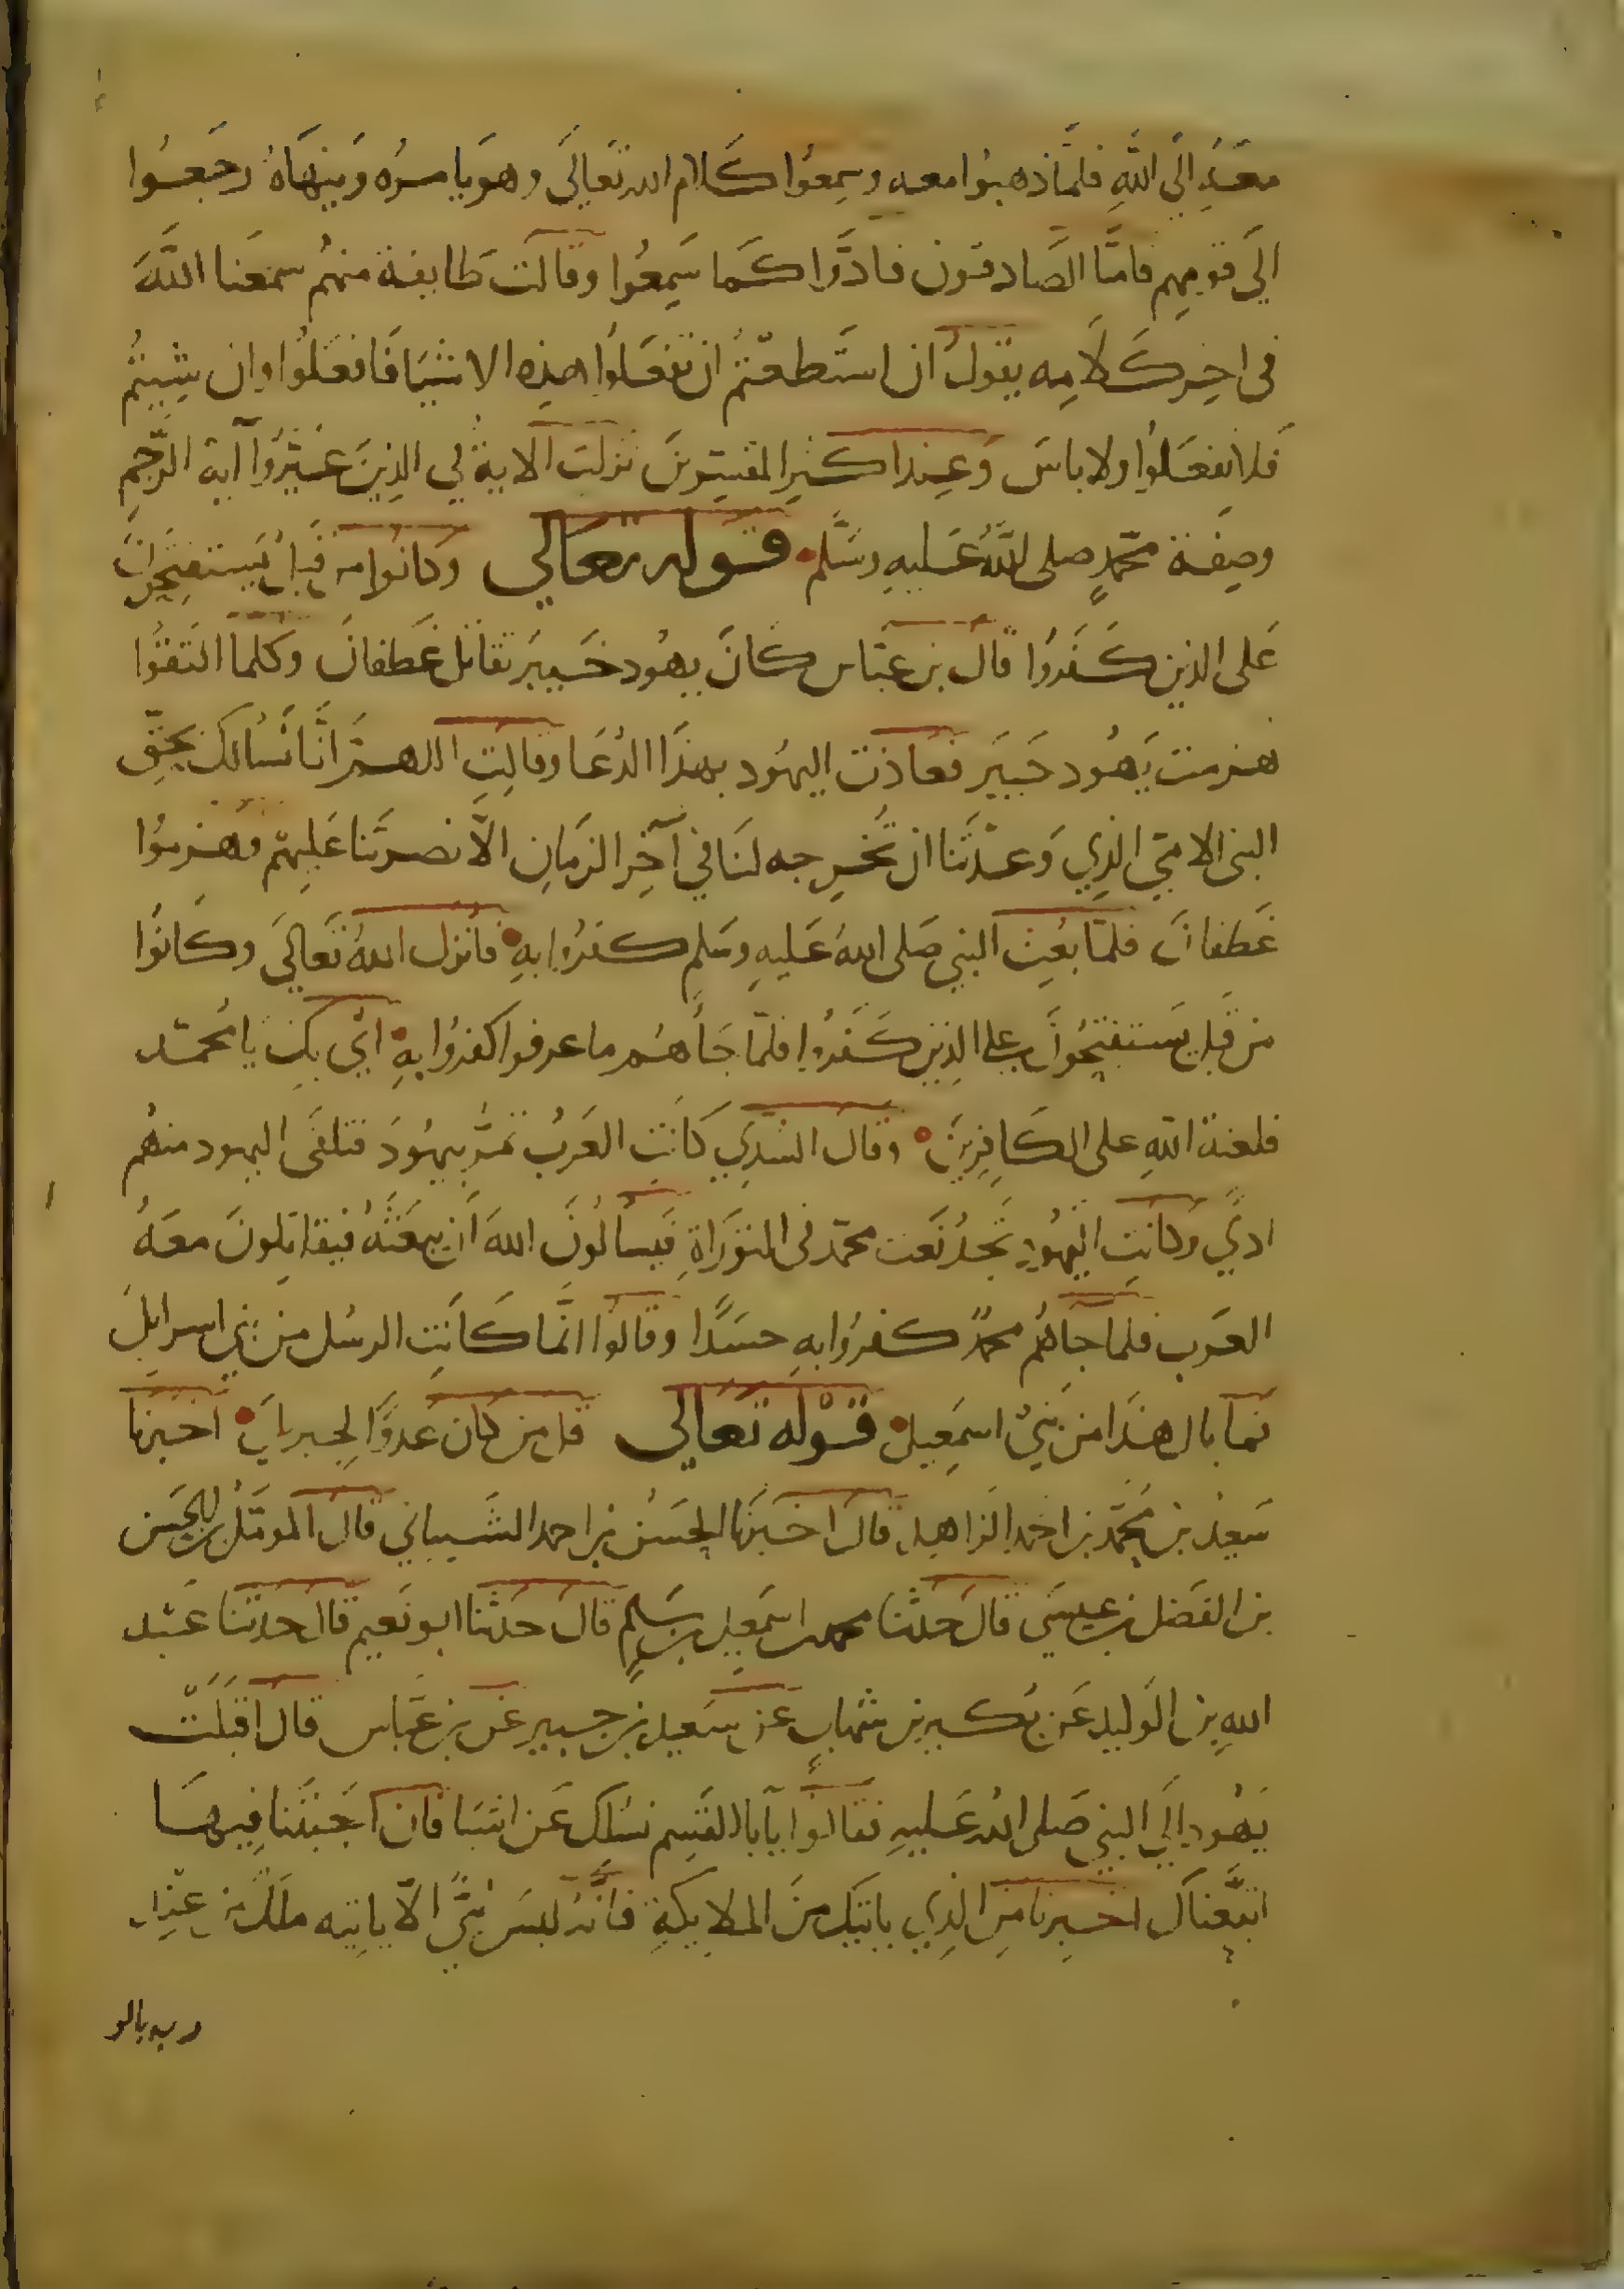 معه الى الله فلما ذهبوا معه وسمعوا كلام الله تعالى وهو يامره وينهاه رجعوا
الى قومهم فاما الصادقون فادوا كما سمعوا وقالت طايفة منهم سمعنا الله
فى اخر كلامه يقول ان استطعتم ان تفعلوا هذه الاشيا فافعلوا وان شيتم
فلا تفعلوا ولا باس وعند اكثر المفسرين نزلت الاية في الذين غيروا آية الرجم
وصفة محمد صلى الله عليه وسلم قوله تعالي وكانوا من قبل يستفتحون
على الذين كفروا قال بن عباس كان يهود خيبر تقاتل غطفان وكلما التقوا
هزمت يهود خيبر فعاذت اليهود بهذا الدعا وقالت اللهم انا نسالك بحق
النبى الامي الذي وعدتنا ان تخرجه لنا في آخر الزمان الا نصرتنا عليهم فهزموا
غطفان فلما بعث النبي صلى الله عليه وسلم كفروا به فانزل الله تعالي وكانوا
من قبل يستفتحون على الذين كفروا فلما جاهم ما عرفوا كفروا به اي بك يا محمد
فلعنة الله على الكافرين وقال السدي كانت العرب تمر بيهود فتلقى اليهود منهم
اذي وكانت اليهود تجد نعت محمد فى التوراة فيسالون الله ان يبعثه فيقاتلون معه
العرب فلما جاهم محمد كفروا به حسدا وقالوا انما كانت الرسل من بني اسرايل
فما بال هذا من بني اسمعيل قوله تعالي قل من كان عدوا لجبريل اخبرنا
سعيد بن محمد بن احمد الزاهد قال اخبرنا الحسن بن احمد الشيباني قال المومل بن الحسن
بن الفضل بن عيسى قال حدثنا محمد بن اسمعيل بن سلم قال حدثنا ابو نعيم قال حدثنا عبد
الله بن الوليد عن بكير بن شهاب عن سعيد بن جبير عن بن عباس قال اقبلت
يهود الي النبي صلى الله عليه فقالوا يابا القسم نسلك عن اشيا فان اجبتنا فيها
اتبعناك اخبرنا من الذي ياتيك من الملايكة فانه ليس نبي الا ياتيه ملك من عند
ربه بالو